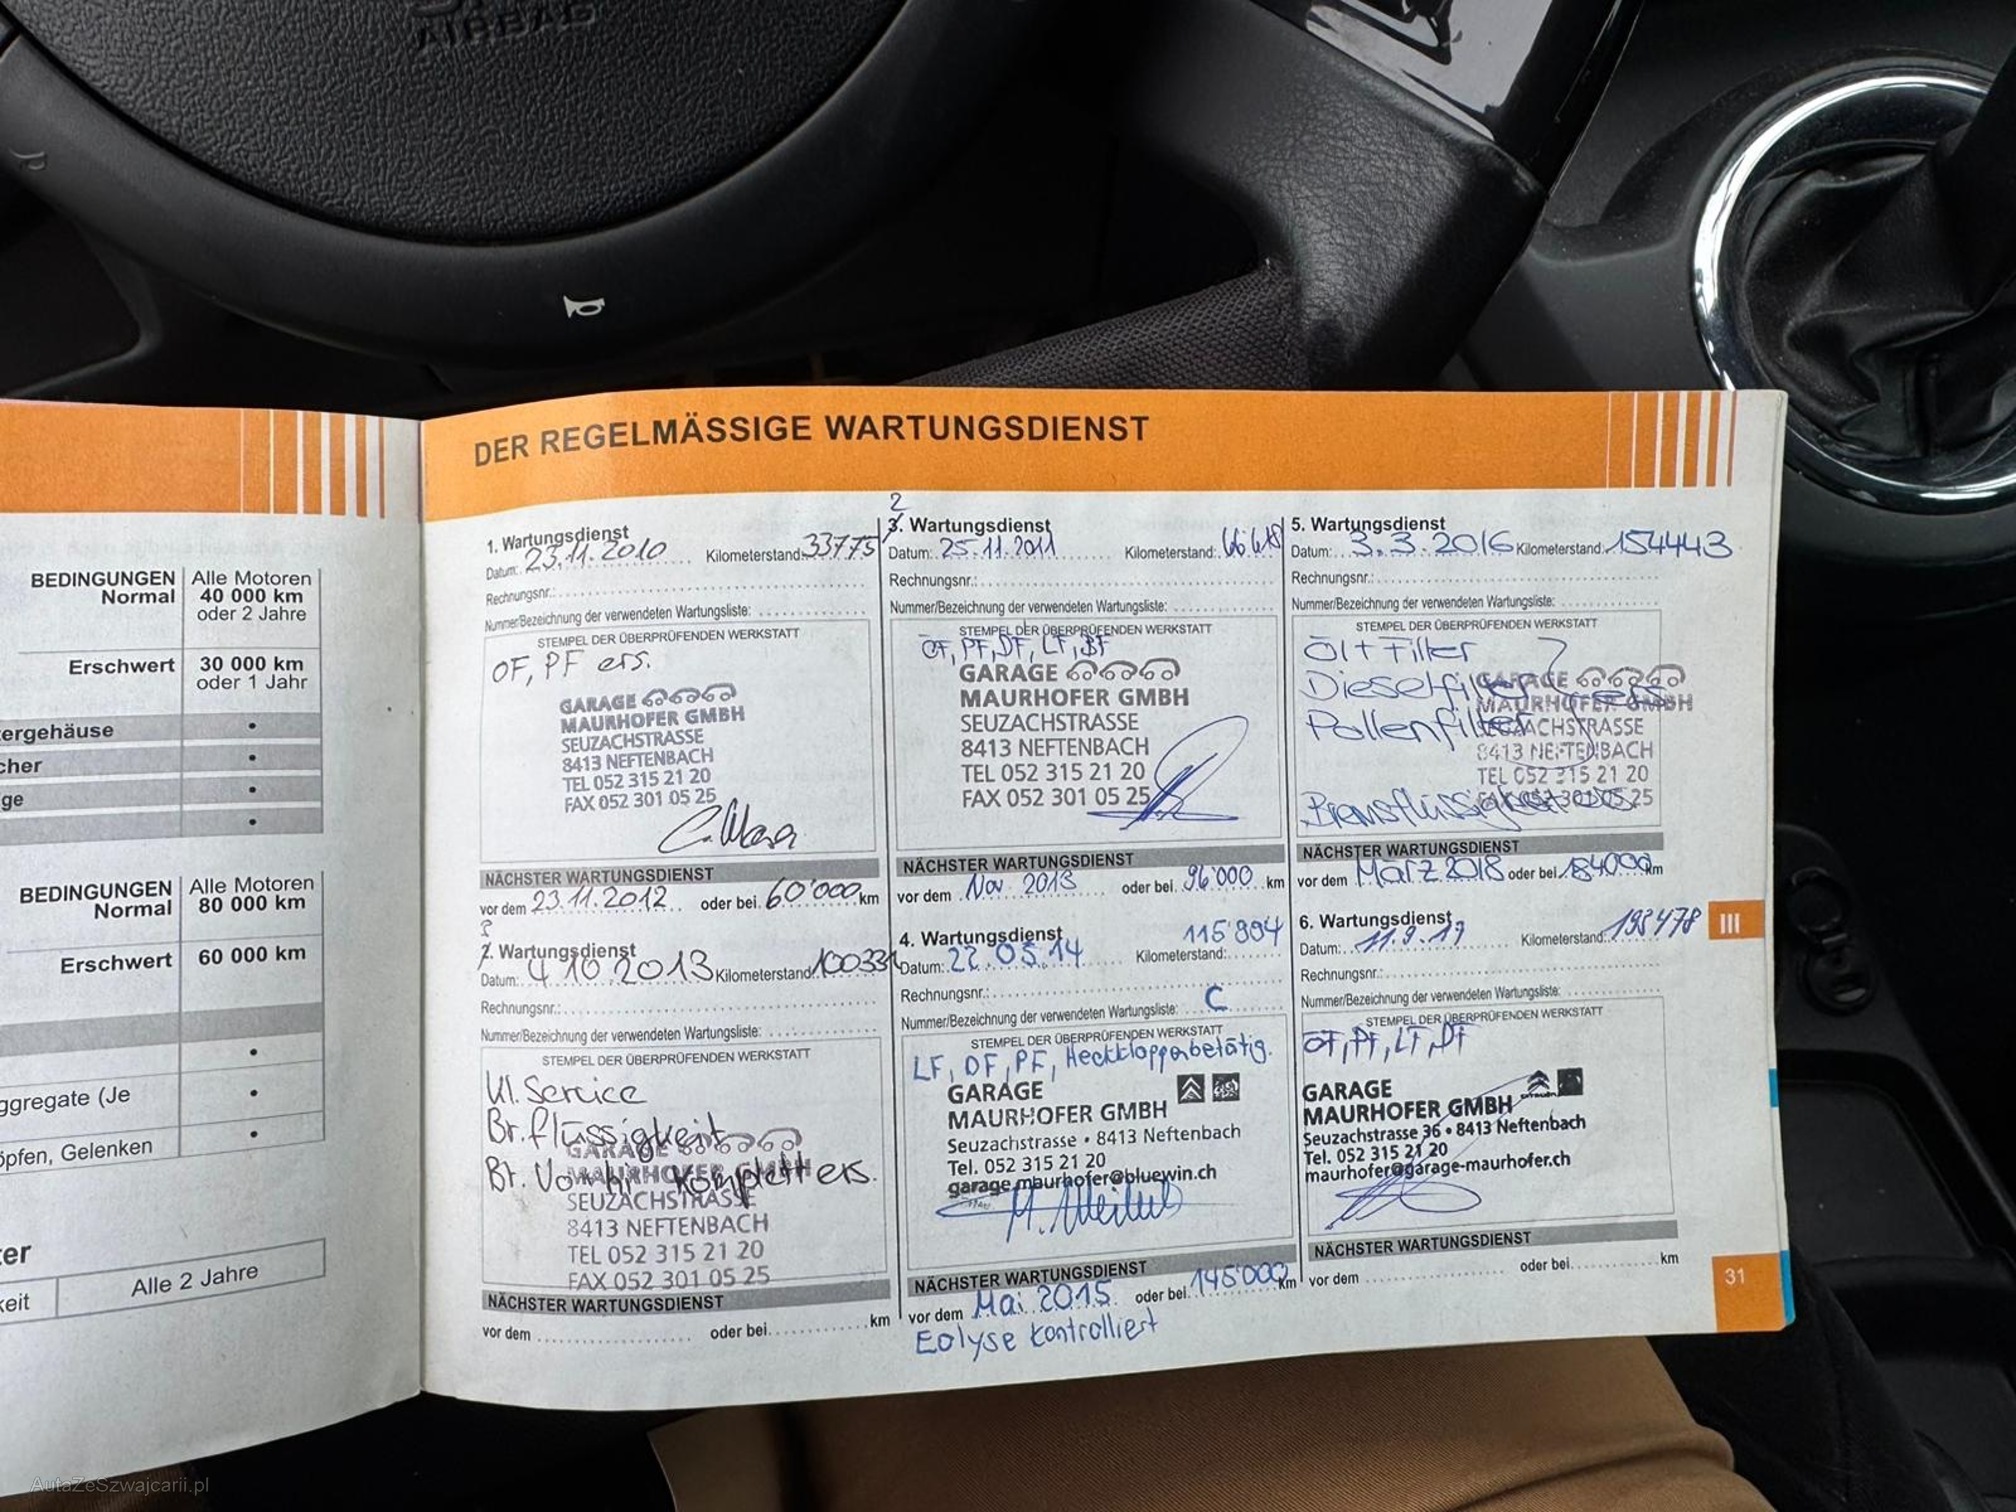 AIRBAG
DER REGELMÄSSIGE WARTUNGSDIENST
BEDINGUNGEN
Normal
Alle Motoren
40 000 km
oder 2 Jahre
Erschwert
30 000 km
oder 1 Jahr
tergehäuse
cher
ge
BEDINGUNGEN
Normal
Alle Motoren
80 000 km
Erschwert
60 000 km
ggregate (Je
öpfen, Gelenken
ter
keit
Alle 2 Jahre
1. Wartungsdienst
Datum: 23.11.2010 Kilometerstand: 33775
Rechnungsnr.:
Nummer/Bezeichnung der verwendeten Wartungsliste:
STEMPEL DER ÜBERPRÜFENDEN WERKSTATT
OF, PF ers.
GARAGE
MAURHOFER GMBH
SEUZACHSTRASSE
8413 NEFTENBACH
TEL 052 315 21 20
FAX 052 301 05 25
NÄCHSTER WARTUNGSDIENST
vor dem 23.11.2012 oder bei 60'000 km
3
2. Wartungsdienst
Datum: 4 10 2013 Kilometerstand: 100331
Rechnungsnr.:
Nummer/Bezeichnung der verwendeten Wartungsliste:
STEMPEL DER ÜBERPRÜFENDEN WERKSTATT
Kl. Service
Br. flüssigkeit
Br. Vo hi komplett ers.
GARAGE
MAURHOFER GMBH
SEUZACHSTRASSE
8413 NEFTENBACH
TEL 052 315 21 20
FAX 052 301 05 25
NÄCHSTER WARTUNGSDIENST
vor dem oder bei km
2
3. Wartungsdienst
Datum: 25.11.2011 Kilometerstand:
Rechnungsnr.:
Nummer/Bezeichnung der verwendeten Wartungsliste:
STEMPEL DER ÜBERPRÜFENDEN WERKSTATT
OF, PF, DF, LF, BF
GARAGE
MAURHOFER GMBH
SEUZACHSTRASSE
8413 NEFTENBACH
TEL 052 315 21 20
FAX 052 301 05 25
NÄCHSTER WARTUNGSDIENST
vor dem Nov. 2013 oder bei 96'000 km
4. Wartungsdienst 115'894
Datum: 22.05.14 Kilometerstand:
Rechnungsnr.:
Nummer/Bezeichnung der verwendeten Wartungsliste: C
STEMPEL DER ÜBERPRÜFENDEN WERKSTATT
LF, DF, PF, Heckklappenbetätig.
GARAGE
MAURHOFER GMBH
Seuzachstrasse • 8413 Neftenbach
Tel. 052 315 21 20
garage.maurhofer@bluewin.ch
NÄCHSTER WARTUNGSDIENST
vor dem Mai 2015 oder bei 145'000 km
Eolyse kontrolliert
5. Wartungsdienst
Datum: 3.3.2016 Kilometerstand: 154443
Rechnungsnr.:
Nummer/Bezeichnung der verwendeten Wartungsliste:
STEMPEL DER ÜBERPRÜFENDEN WERKSTATT
Öl + Filter
Dieselfilter
Pollenfilter
ers
Bremsflüssigkeit
GARAGE
MAURHOFER GMBH
SEUZACHSTRASSE
8413 NEFTENBACH
TEL 052 315 21 20
FAX 052 301 05 25
NÄCHSTER WARTUNGSDIENST
vor dem März 2018 oder bei 184000 km
6. Wartungsdienst
Datum: 11.9.17 Kilometerstand: 193478
Rechnungsnr.:
Nummer/Bezeichnung der verwendeten Wartungsliste:
STEMPEL DER ÜBERPRÜFENDEN WERKSTATT
OF, PF, LF, DF
GARAGE
MAURHOFER GMBH
CITROËN
Seuzachstrasse 36 • 8413 Neftenbach
Tel. 052 315 21 20
maurhofer@garage-maurhofer.ch
NÄCHSTER WARTUNGSDIENST
vor dem oder bei km
III
31
AutaZeSzwajcarii.pl